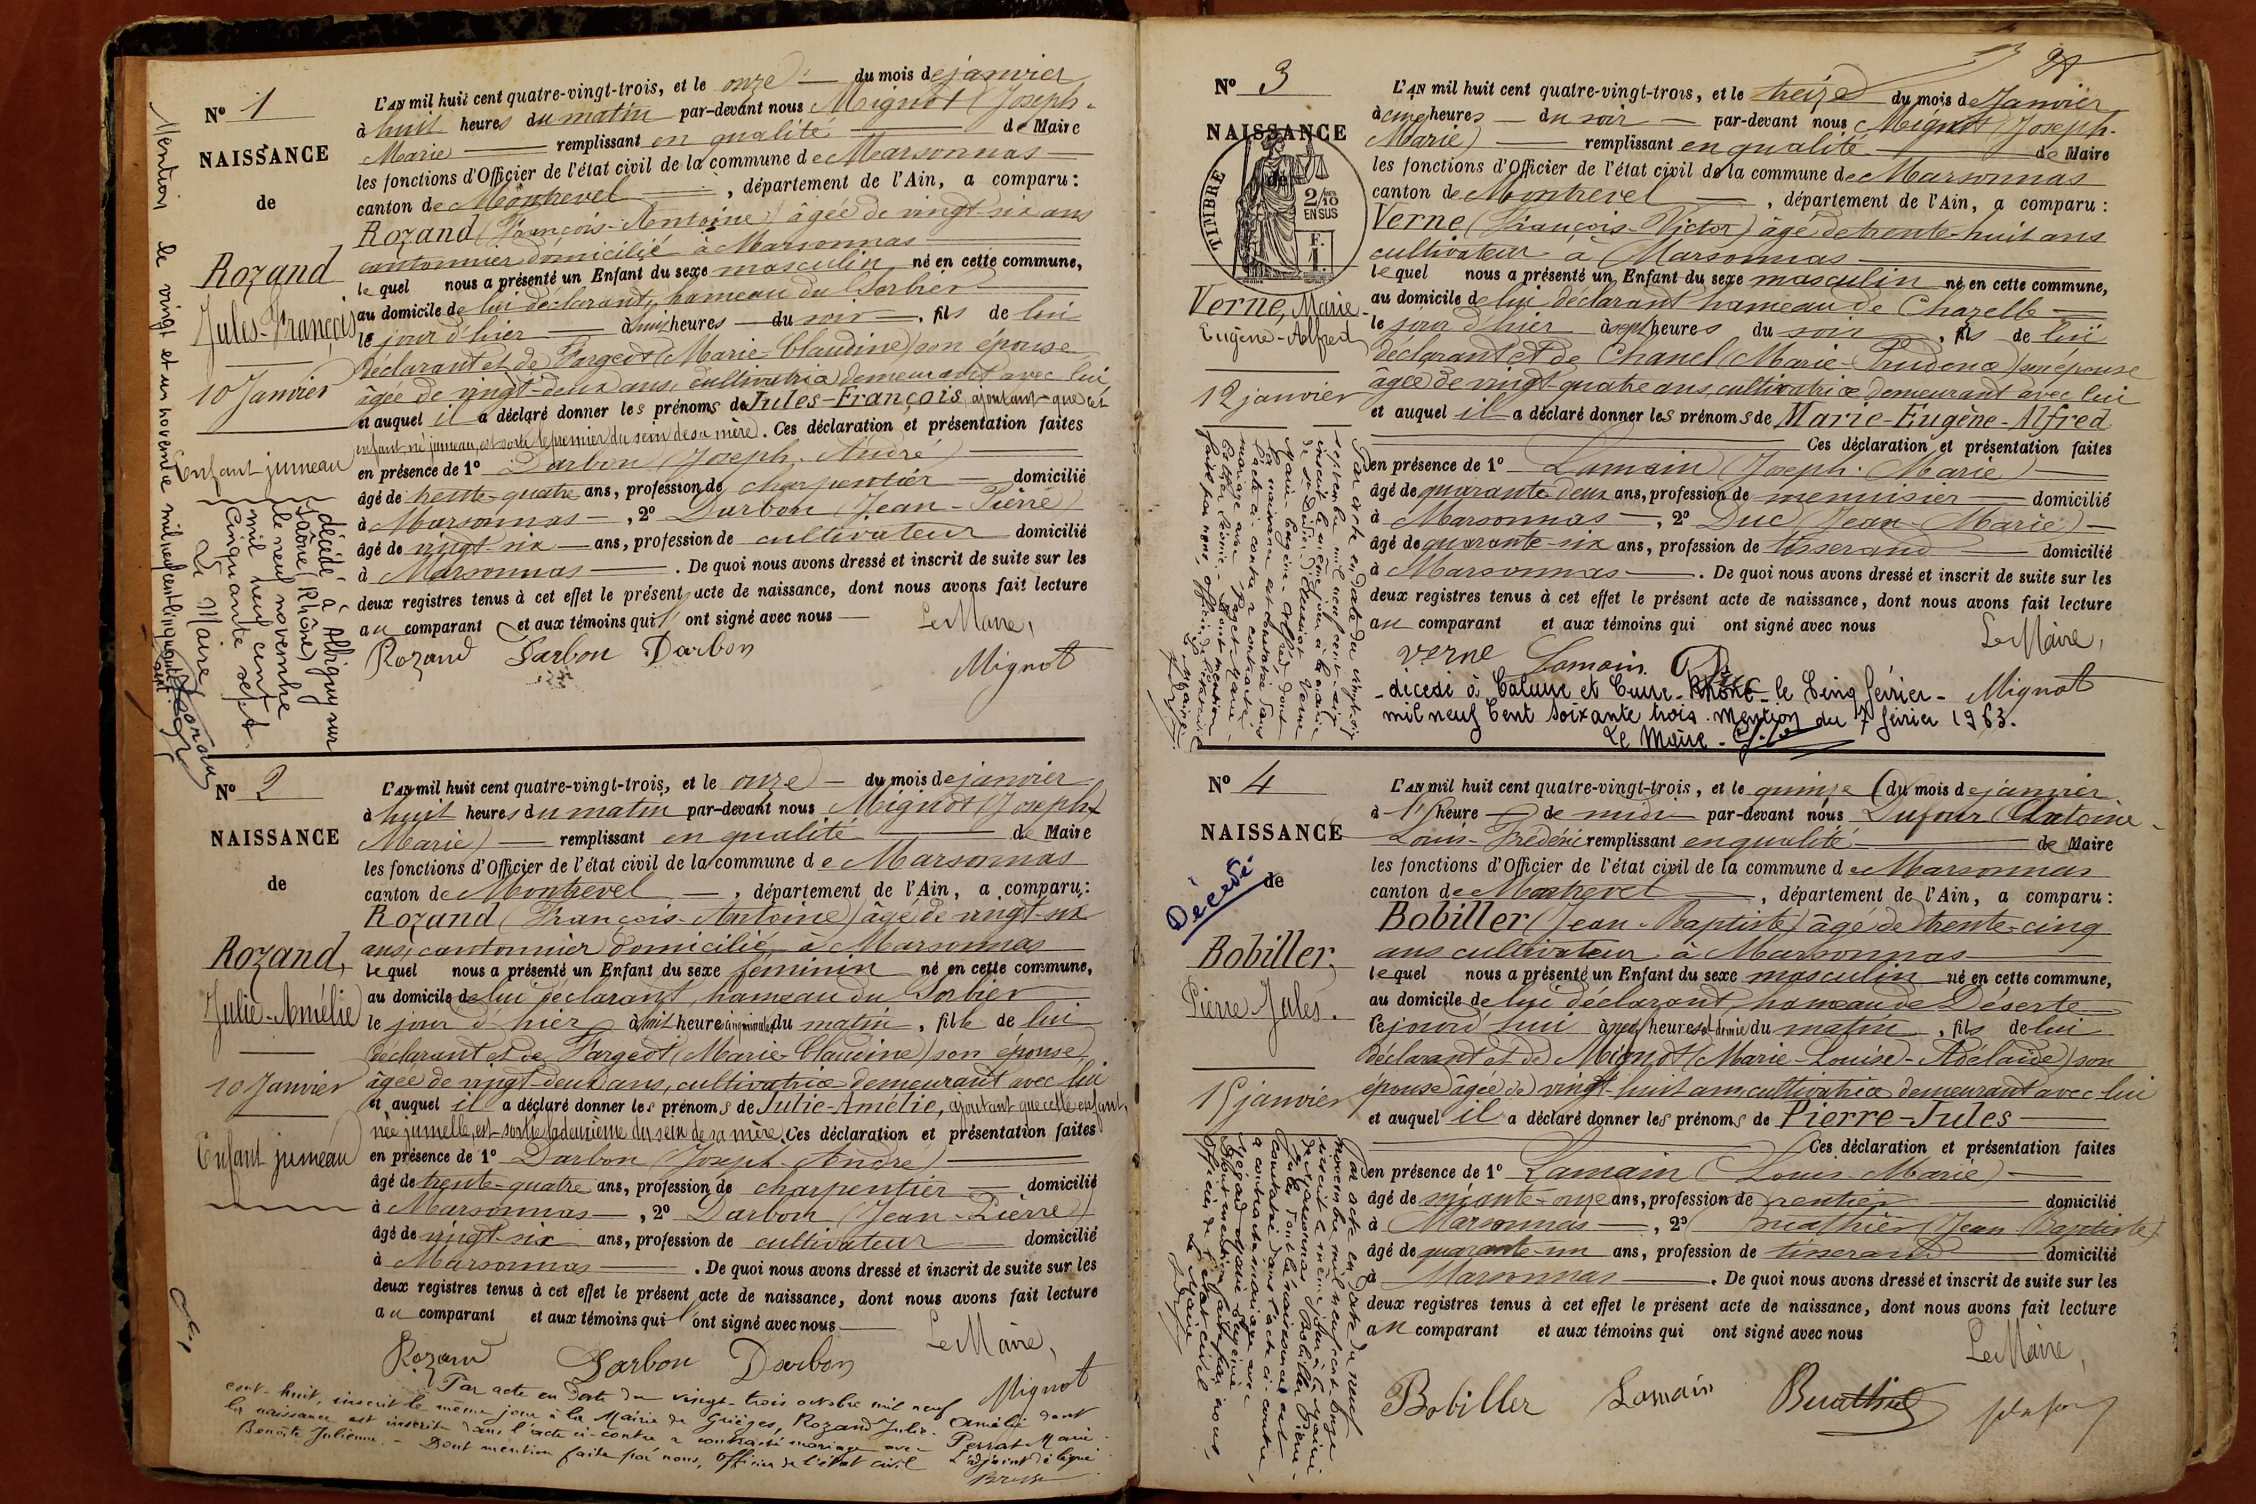 Nº 1
NAISSANCE
de
Rozand
Jules-François
10 Janvier
Enfant jumeau
décédé à Albigny sur
Saône (Rhône)
le neuf novembre
mil neuf cent
cinquante sept.
Le Maire
Mention le vingt et un novembre mil neuf cent cinquante sept
L'AN mil huit cent quatre-vingt-trois, et le onze du mois de janvier
à huit heures du matin par-devant nous Mignot (Joseph-
Marie) remplissant en qualité de Maire
les fonctions d'Officier de l'état civil de la commune de Marsonnas
canton de Montrevel, département de l'Ain, a comparu :
Rozand (François-Antoine) âgée de vingt-six ans
cantonnier domicilié à Marsonnas
lequel nous a présenté un Enfant du sexe masculin né en cette commune,
au domicile de lui déclarant, hameau du Sorbier
le jour d'hier à huit heures du soir, fils de lui
déclarant et de Fargeot (Marie-Claudine) son épouse
âgée de vingt-deux ans, cultivatrice demeurant avec lui
et auquel il a déclaré donner les prénoms de Jules-François, ajoutant que cet
enfant né jumeau, est sorti le premier du sein de sa mère. Ces déclaration et présentation faites
en présence de 1º Darbon (Joseph-André)
âgé de trente-quatre ans, profession de charpentier domicilié
à Marsonnas, 2º Darbon (Jean-Pierre)
âgé de vingt-six ans, profession de cultivateur domicilié
à Marsonnas. De quoi nous avons dressé et inscrit de suite sur les
deux registres tenus à cet effet le présent acte de naissance, dont nous avons fait lecture
au comparant et aux témoins qui ont signé avec nous
Le Maire,
Rozand Darbon Darbon
Mignot
Nº 2
NAISSANCE
de
Rozand,
Julie-Amélie
10 Janvier
Enfant jumeau
L'AN mil huit cent quatre-vingt-trois, et le onze du mois de janvier
à huit heures du matin par-devant nous Mignot (Joseph-
Marie) remplissant en qualité de Maire
les fonctions d'Officier de l'état civil de la commune de Marsonnas
canton de Montrevel, département de l'Ain, a comparu :
Rozand (François-Antoine) âgé de vingt-six
ans, cantonnier domicilié à Marsonnas
lequel nous a présenté un Enfant du sexe féminin né en cette commune,
au domicile de lui déclarant, hameau du Sorbier
le jour d'hier à huit heures du matin, fille de lui
déclarant et de Fargeot (Marie-Claudine) son épouse
âgée de vingt-deux ans, cultivatrice demeurant avec lui
et auquel il a déclaré donner les prénoms de Julie-Amélie, ajoutant que cette enfant,
née jumelle, est sortie la deuxième du sein de sa mère. Ces déclaration et présentation faites
en présence de 1º Darbon (Joseph-André)
âgé de trente-quatre ans, profession de charpentier domicilié
à Marsonnas, 2º Darbon (Jean-Pierre)
âgé de vingt-six ans, profession de cultivateur domicilié
à Marsonnas. De quoi nous avons dressé et inscrit de suite sur les
deux registres tenus à cet effet le présent acte de naissance, dont nous avons fait lecture
au comparant et aux témoins qui ont signé avec nous
Le Maire,
Rozand Darbon Darbon
Mignot
Par acte en date du vingt-trois octobre mil neuf
cent-huit, inscrit le même jour à la Mairie de Grièges, Rozand Julie-Amélie dont
la naissance est inscrite dans l'acte ci-contre a contracté mariage avec Perrat Marie
Benoîte Julienne. - Dont mention faite par nous, Officier de l'état civil
L'adjoint délégué
Nº 3
NAISSANCE
de
TIMBRE
2/10
EN SUS
Verne, Marie-
Eugène-Alfred
12 janvier
Par acte en date du vingt-six
septembre mil neuf cent
inscrit le même jour à la mairie
de St Didier d'Aussiat Verne
Marie-Eugène-Alfred dont
la naissance est constatée dans
l'acte ci-contre a contracté
mariage avec Marie
Dont mention
faite par nous, officier de l'état civil
Le Maire
L'AN mil huit cent quatre-vingt-trois, et le treize du mois de Janvier
à cinq heures du soir par-devant nous Mignot (Joseph-
Marie) remplissant en qualité de Maire
les fonctions d'Officier de l'état civil de la commune de Marsonnas
canton de Montrevel, département de l'Ain, a comparu :
Verne (François-Victor) âgé de trente-huit ans
cultivateur à Marsonnas
lequel nous a présenté un Enfant du sexe masculin né en cette commune,
au domicile de lui déclarant hameau de Charelle
le jour d'hier à sept heures du soir, fils de lui
déclarant et de Chanel (Marie-Prudence) son épouse
âgée de vingt-quatre ans, cultivatrice demeurant avec lui
et auquel il a déclaré donner les prénoms de Marie-Eugène-Alfred
Ces déclaration et présentation faites
en présence de 1º Lamain (Joseph-Marie)
âgé de quarante-deux ans, profession de menuisier domicilié
à Marsonnas, 2º Duc (Jean-Marie)
âgé de quarante-six ans, profession de tisserand domicilié
à Marsonnas. De quoi nous avons dressé et inscrit de suite sur les
deux registres tenus à cet effet le présent acte de naissance, dont nous avons fait lecture
au comparant et aux témoins qui ont signé avec nous
Le Maire,
Verne Lamain Duc
Mignot
- décédé à Caluire et Cuire - Rhône - le Cinq février -
mil neuf Cent soixante trois. Mention du 7 février 1963.
Le Maire -
Nº 4
NAISSANCE
de
Décédé
Bobiller,
Pierre Jules.
15 janvier
Par acte en date du neuf
novembre mil neuf cent onze
inscrit le même jour à la mairie
de Marsonnas Bobiller Pierre-
Jules dont la naissance est
constatée dans l'acte ci-contre,
a contracté mariage avec
Marie Eugénie
Dont mention faite par nous,
officier de l'état civil
Le Maire
L'AN mil huit cent quatre-vingt-trois, et le quinze du mois de janvier
à 1 heure de midi par-devant nous Dufour (Antoine-
Louis-Frédéric) remplissant en qualité de Maire
les fonctions d'Officier de l'état civil de la commune de Marsonnas
canton de Montrevel, département de l'Ain, a comparu :
Bobiller (Jean-Baptiste) âgé de trente-cinq
ans cultivateur à Marsonnas
lequel nous a présenté un Enfant du sexe masculin né en cette commune,
au domicile de lui déclarant, hameau de Déserte
le jourd'hui à neuf heures et demie du matin, fils de lui
déclarant et de Mignot (Marie-Louise-Adélaïde) son
épouse âgée de vingt-huit ans, cultivatrice demeurant avec lui
et auquel il a déclaré donner les prénoms de Pierre-Jules
Ces déclaration et présentation faites
en présence de 1º Lamain (Louis-Marie)
âgé de soixante-onze ans, profession de rentier domicilié
à Marsonnas, 2º Buathier (Jean-Baptiste)
âgé de quarante-un ans, profession de tisserand domicilié
à Marsonnas. De quoi nous avons dressé et inscrit de suite sur les
deux registres tenus à cet effet le présent acte de naissance, dont nous avons fait lecture
au comparant et aux témoins qui ont signé avec nous
Le Maire,
Bobiller Lamain Buathier Dufour